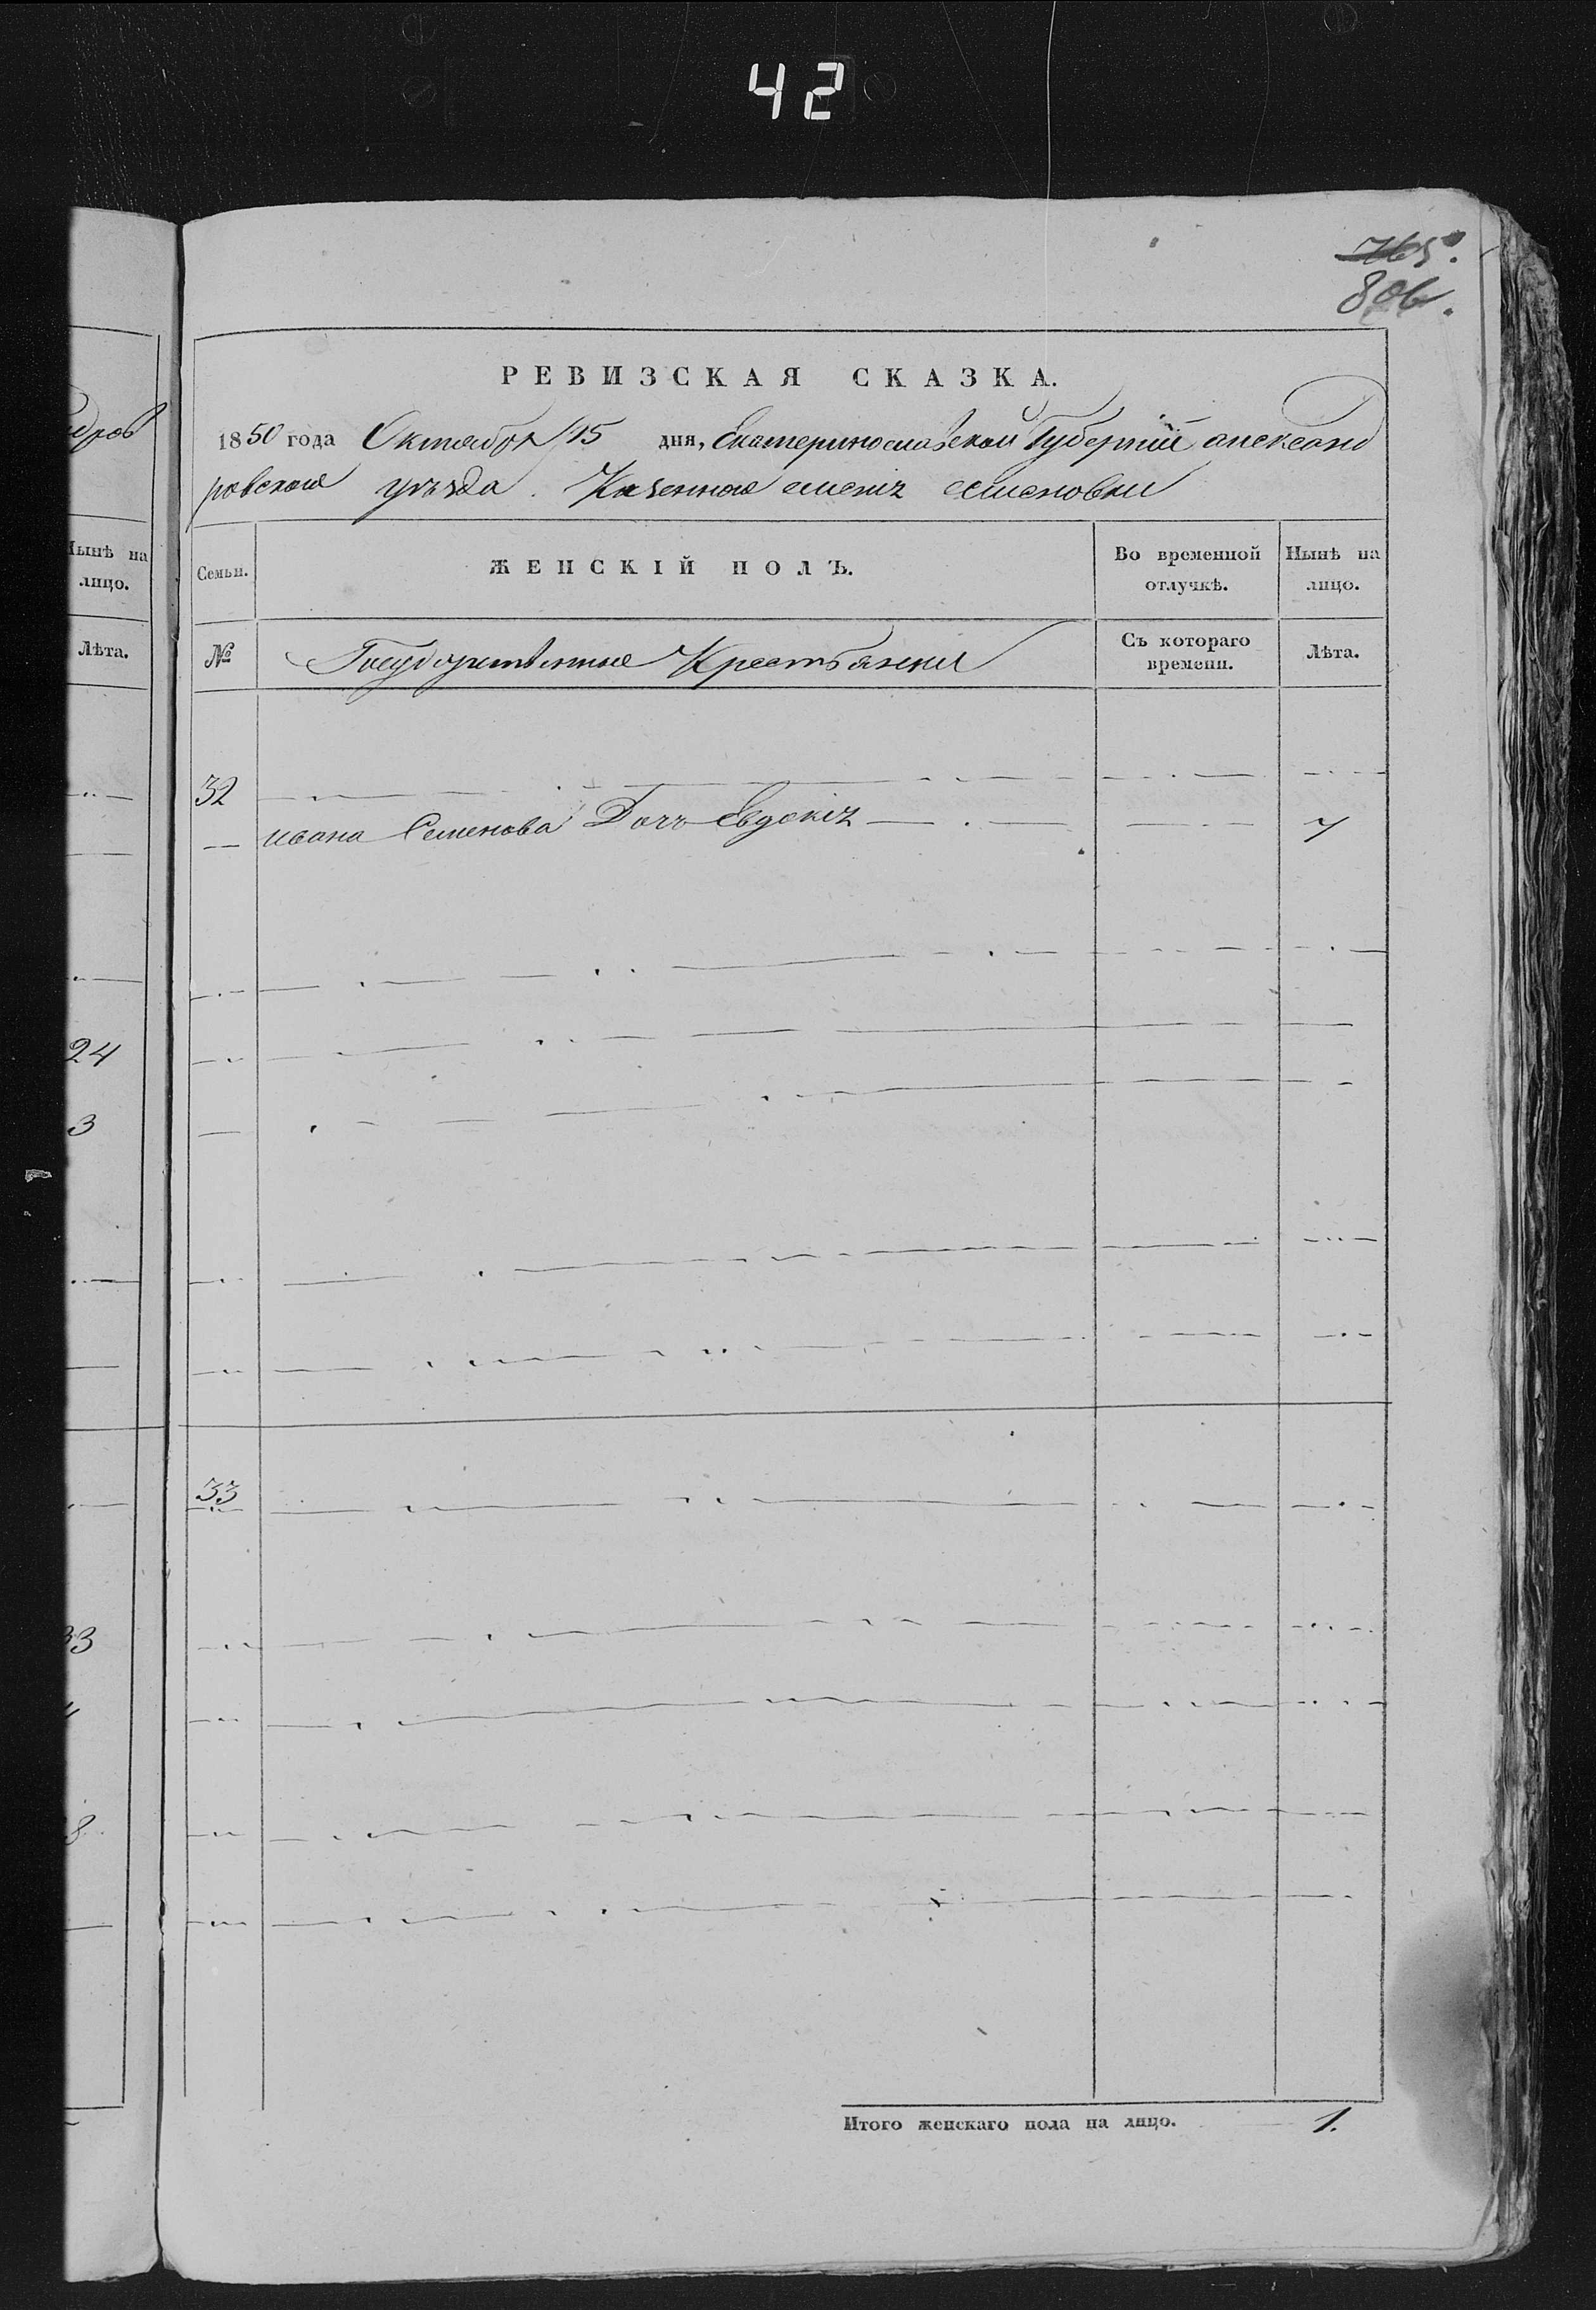 42
765.
806.
едров
РЕВИЗСКАЯ СКАЗКА.
1850 года Октября 15 дня, Екатеринославской Губернии александ
ровского уѣзда. Казенного семеновки
Нынѣ на лицо.
Лѣта.
Семьи.
ЖЕНСКІЙ ПОЛЪ.
Во временной отлучкѣ.
Нынѣ на лицо.
№
Государственные Крестьянки
Съ котораго времени.
Лѣта.
32
ивана Семенова Дочь Евдокія 7
24
3
33
33
8
Итого женскаго пола на лицо. 1.